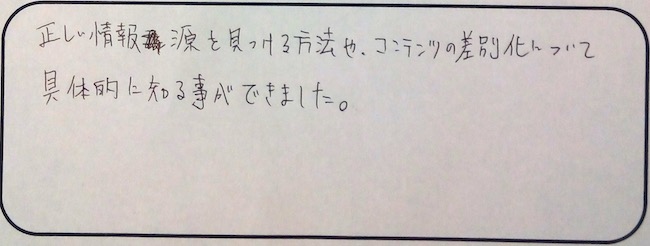 正しい情報源を見つける方法や、コンテンツの差別化について
具体的に知る事ができました。